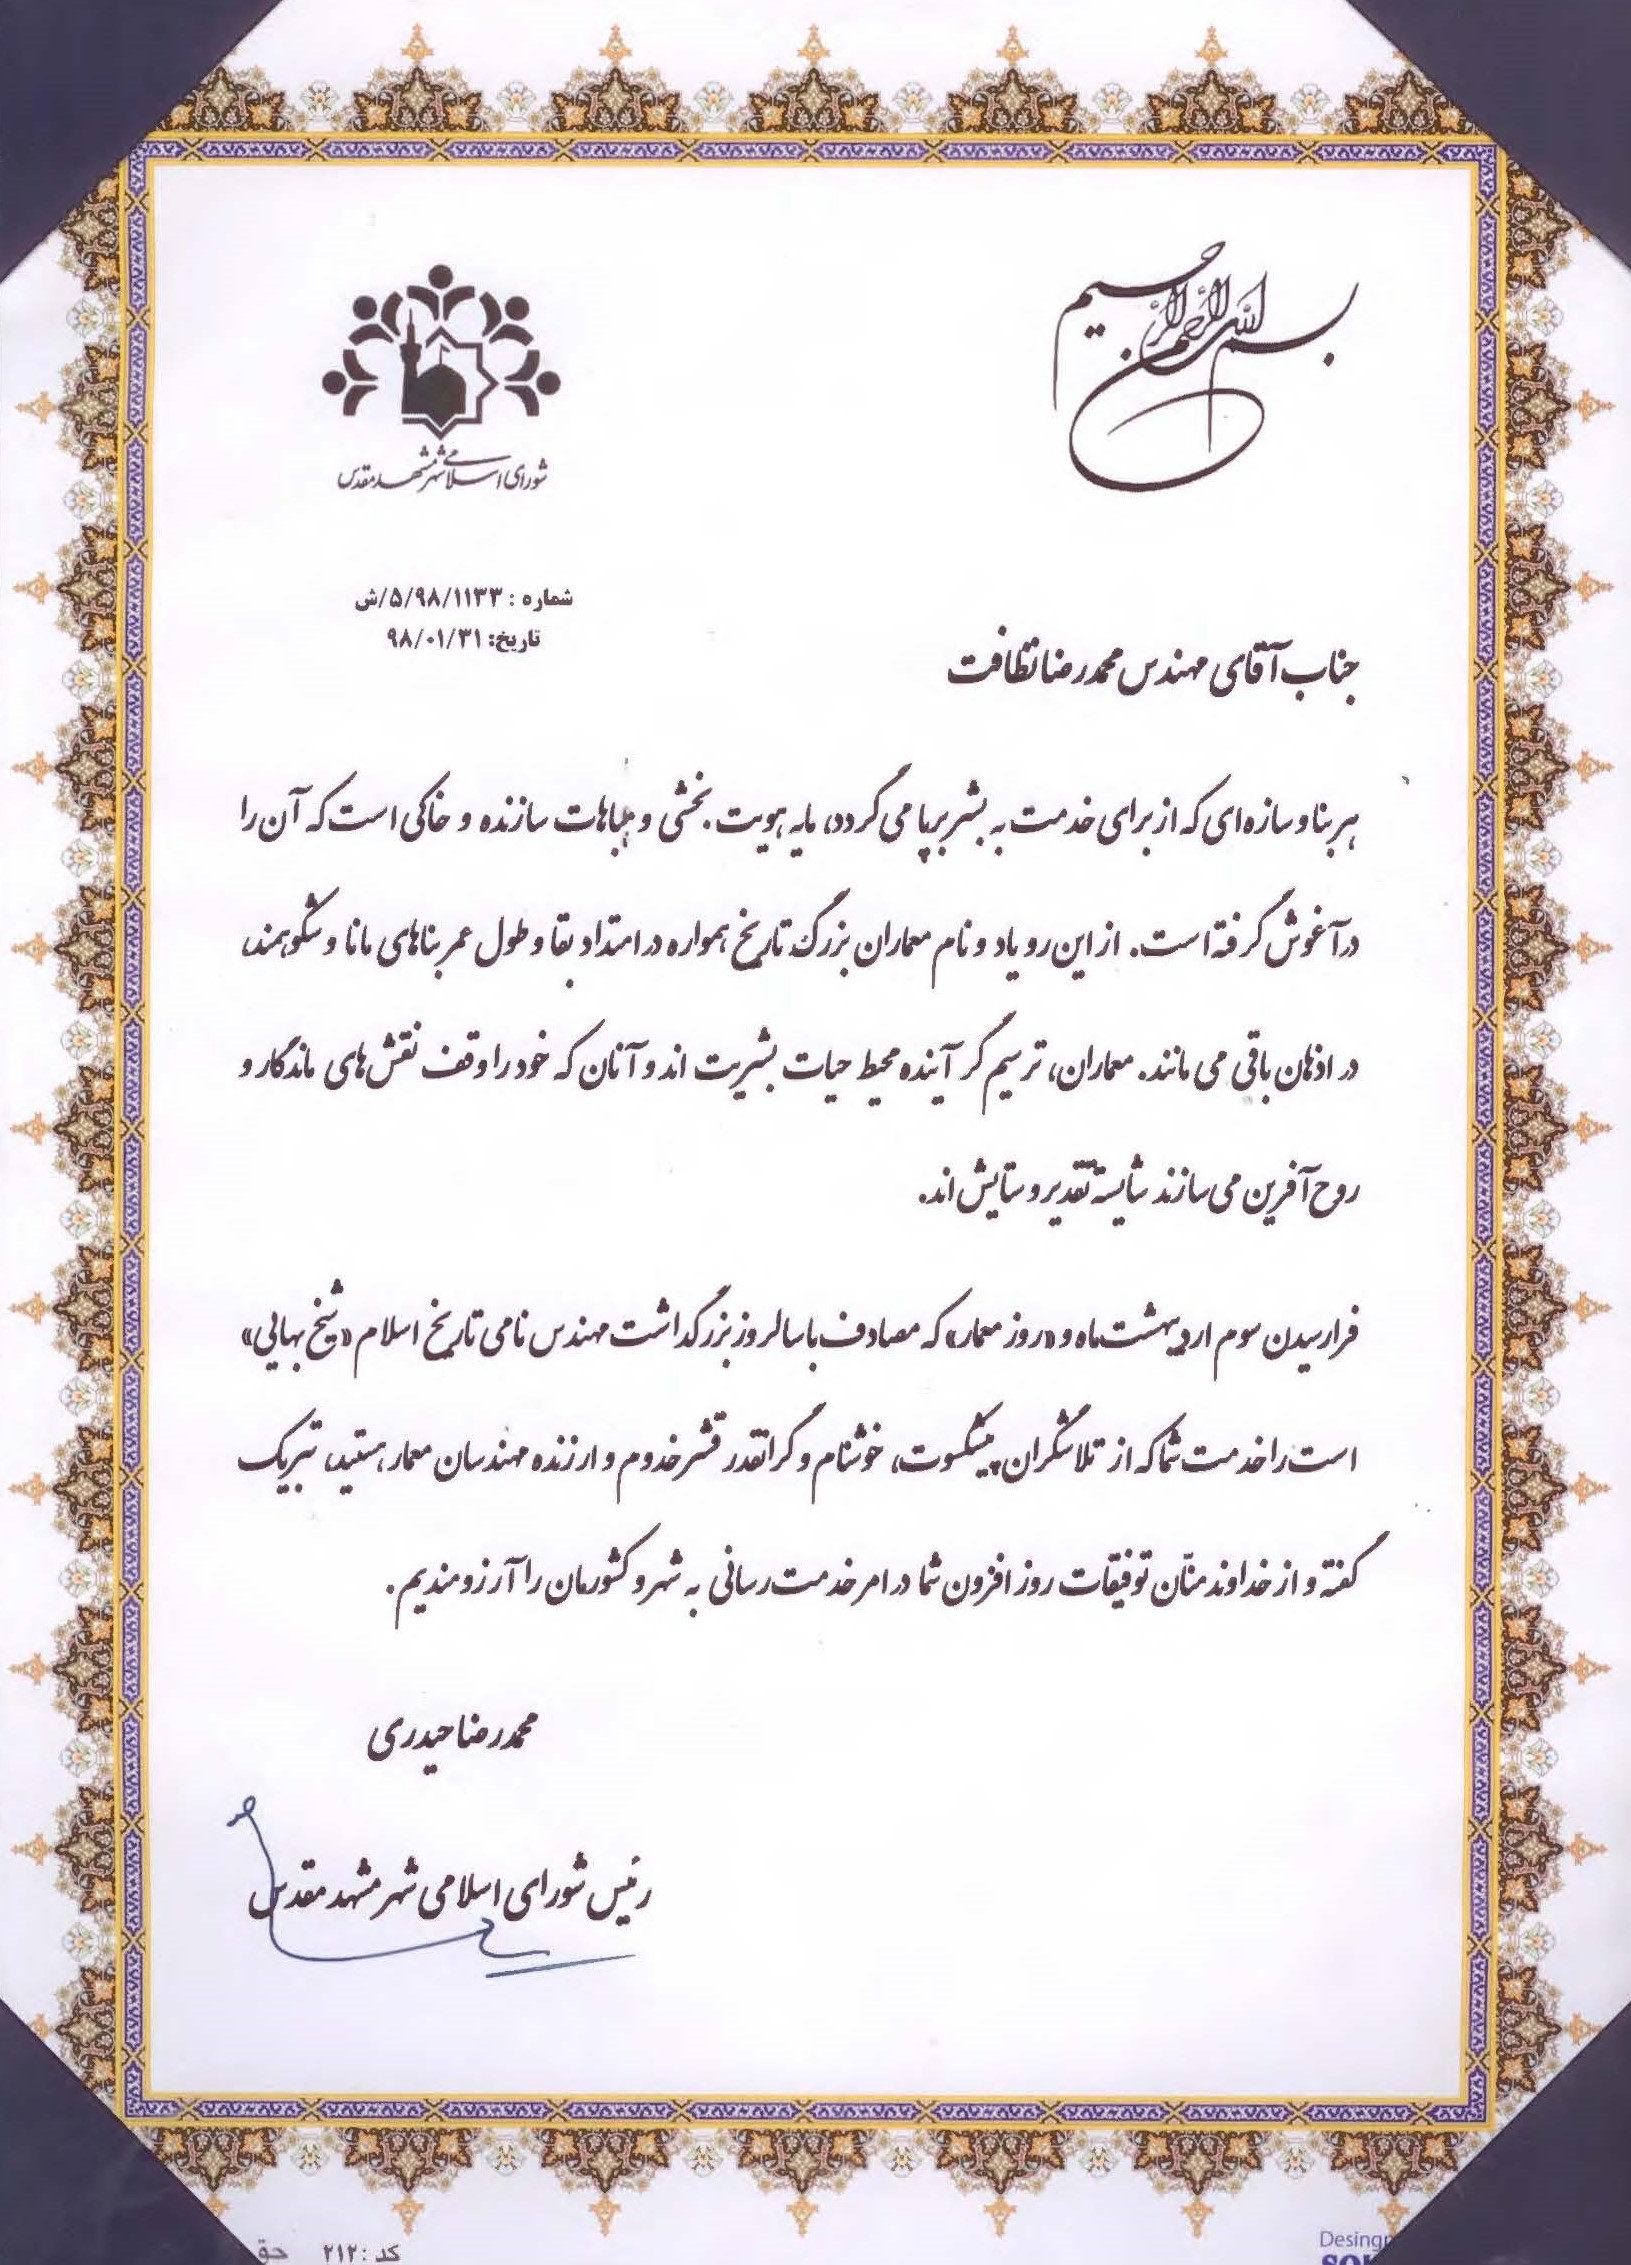 بسم الله الرحمن الرحیم
شورای اسلامی شهر مشهد مقدس
شماره : ۵/۹۸/۱۱۳۳/ش
تاریخ: ۹۸/۰۱/۳۱
جناب آقای مهندس محمدرضا نظافت
هر بنا و سازه ای که از برای خدمت به بشر برپا می گردد، مایه هویت بخشی و مباهات سازنده و خاکی است که آن را
در آغوش گرفته است. از این رو یاد و نام معماران بزرگ تاریخ همواره در امتداد بقا و طول عمر بناهای مانا و شکوهمند،
در اذهان باقی می مانند. معماران، ترسیم گر آینده محیط حیات بشریت اند و آنان که خود را وقف نقش های ماندگار و
روح آفرین می سازند شایسته تقدیر و ستایش اند.
فرا رسیدن سوم اردیبهشت ماه و «روز معمار» که مصادف با سالروز بزرگداشت مهندس نامی تاریخ اسلام «شیخ بهایی»
است را خدمت شما که از تلاشگران پیشکسوت، خوشنام و گرانقدر قشر خدوم و ارزنده مهندسان معمار هستید، تبریک
گفته و از خداوند منّان توفیقات روز افزون شما در امر خدمت رسانی به شهر و کشورمان را آرزومندیم.
محمدرضا حیدری
رئیس شورای اسلامی شهر مشهد مقدس
کد : ۲۱۲ حق
Desing